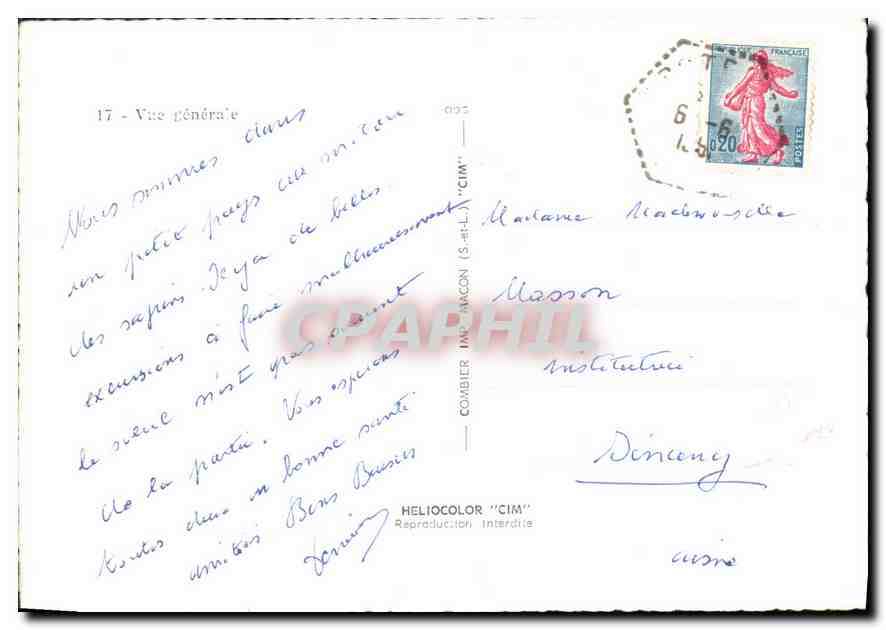 17 - Vue générale
Nous sommes dans
un petit pays au milieu
des sapins. Il y a de belles
excursions à faire malheureusement
le soleil n'est pas souvent
de la partie. Vous espérons
toutes deux en bonne santé
amitiés Bons Baisers
COMBIER IMP. MACON (S.-et-L.) "CIM"
HELIOCOLOR "CIM"
Reproduction Interdite
REPUBLIQUE FRANÇAISE
0,20
POSTES
6 -6
Madame Mademoiselle
Masson
institutrice
Sinceny
aisne
CPAPHIL